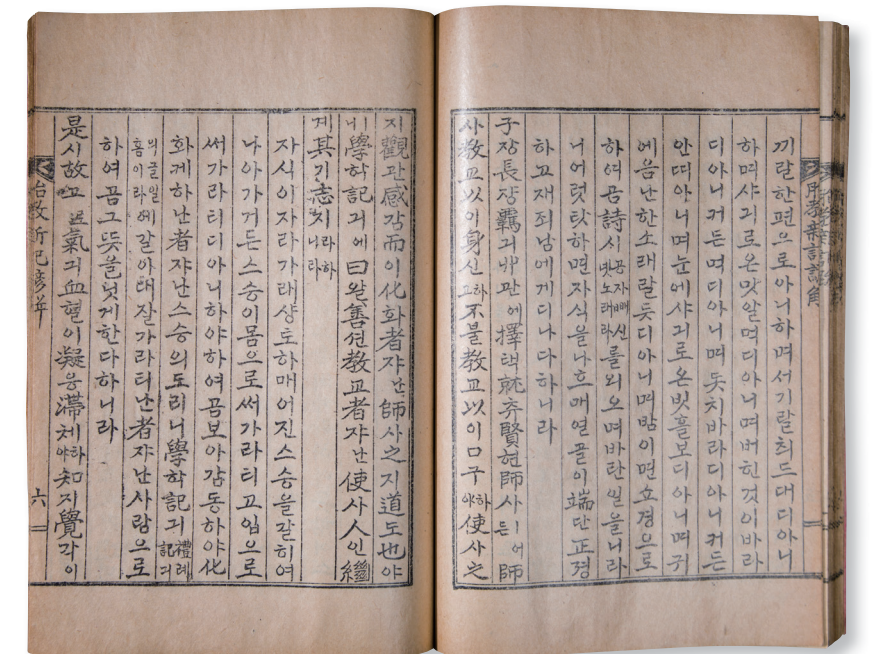 끼랄한편으로아니하며서기랄최드대디아니
하며샤긔로온맛알먹디아니며버힌것이바라
디아니커든먹디아니며돗치바라디아니커든
안띠아니며눈에샤긔로온빗흘보디아니며귀
에음난한소래랄듯디아니며밤이면쇼경으로
하여곰詩시공자빼신녯노래라를외오며바란일을니라
니어럿탓하면자식을나흐매얼골이端단正졍
하고재죄남에게디나다하니라
子자長쟝羈긔丱관에擇택就츄賢현師사ㅣ어든師
사敎교以이身신하고不불敎교以이口구하야使사之
지觀관感감而이化화者쟈난師사之지道도也야
ㅣ니學학記긔에曰왈善션敎교者쟈난使사人인繼
계其기志지라하니라
자식이자라가래샹토하매어진스승을갈히여
나아가거든스승이몸으로써가라티고입으로
써가라티디아니하야하여곰보아감동하야化
화케하난者쟈난스승의도리니學학記긔禮례記긔
의글일홈이라에갈아대잘가라티난者쟈난사람으로
하여곰그뜻을닛게한다하니라
是시故고로氣긔血혈이凝응滯체하야知지覺각이
胎敎新記諺解 六